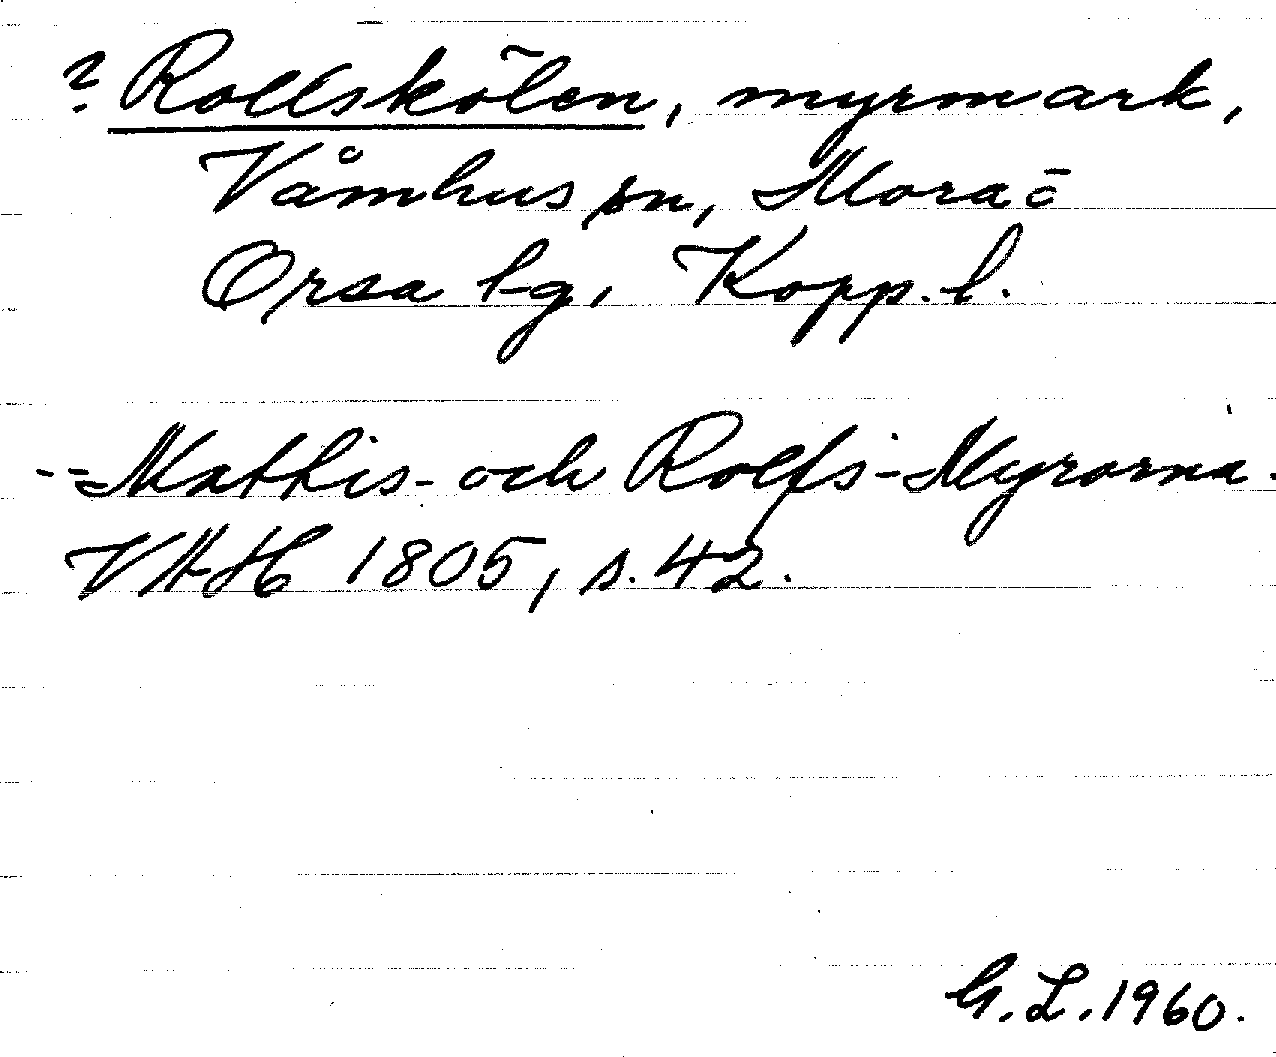 ? Rollskölen, myrmark,
Våmhus sn, Mora o
Orsa tg, Kopp. l.
-- Mathis- och Rolfs-Myrorna.
VAH 1805, s. 42.
G. L. 1960.